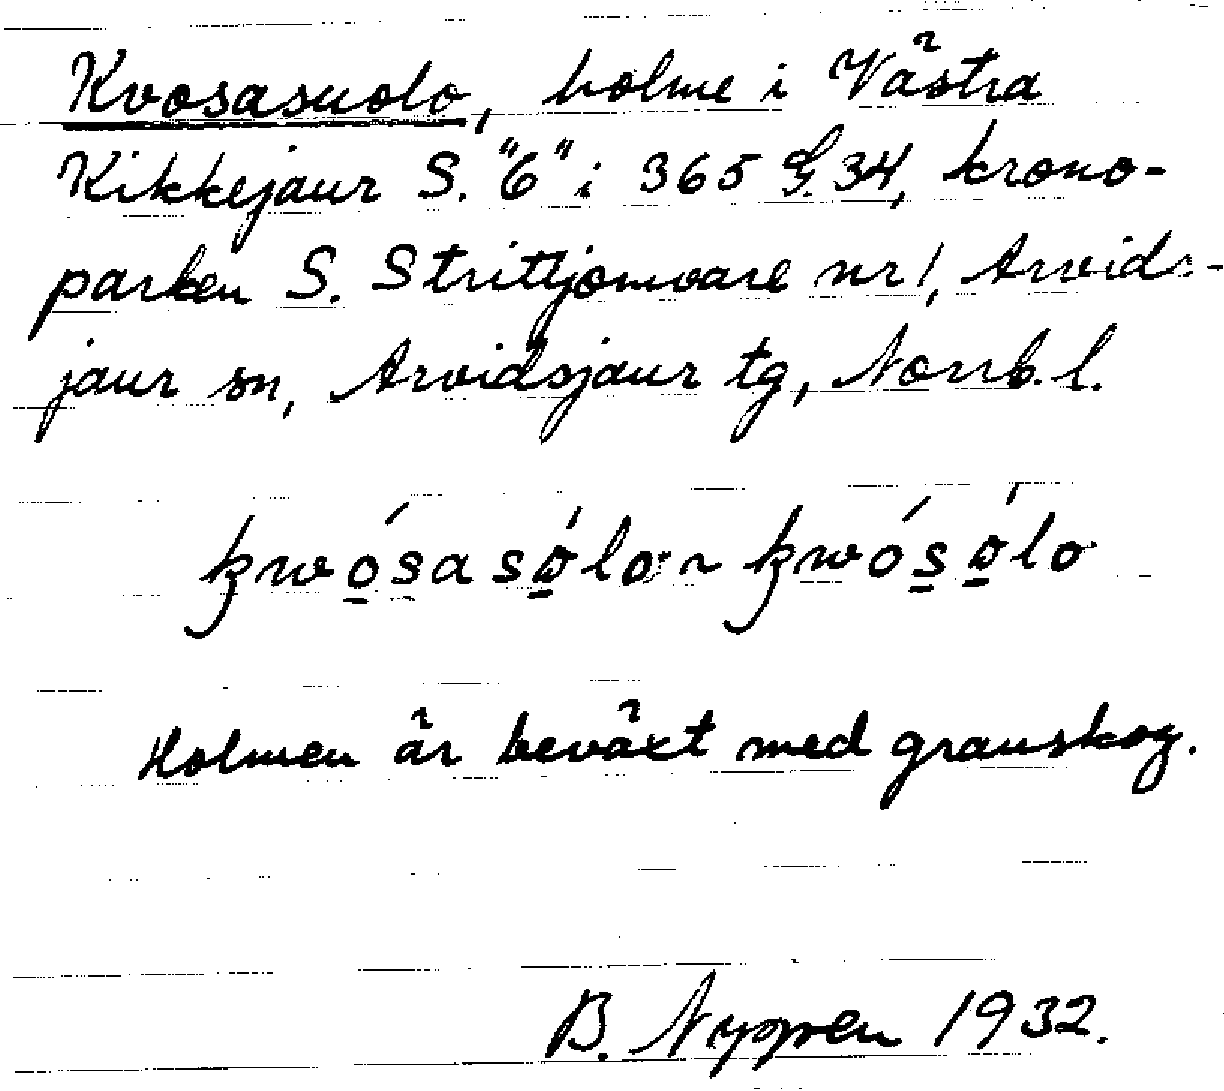 Kvosasuolo, holme i Västra
Kikkejaur S. "6" i 365 G. 34, krono-
parken S. Strittjomvare nr 1, Arvids-
jaur sn, Arvidsjaur tg, Norrb. l.
kwo̱ńsasó̱lo ~ kwósó̱lo
Holmen är beväxt med granskog.
B. Nyppen 1932.